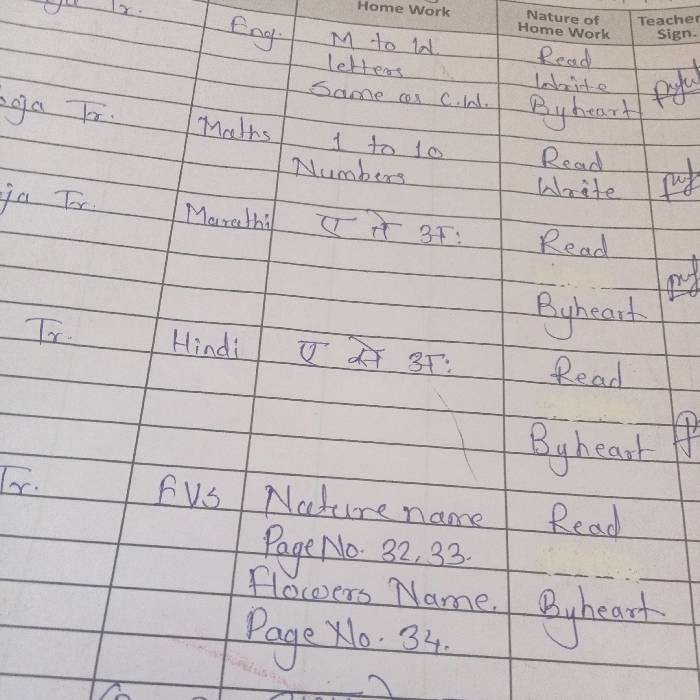 Home Work Nature of Home Work Teacher Sign.
Tr. Eng. M to W Read
letters Write
Same as C.W. Byheart
Tr. Maths 1 to 10 Read
Numbers Write
Tr. Marathi ए ते अ: Read
Byheart
Tr. Hindi ए से अ: Read
Byheart
Tr. EVS Nature name Read
Page No. 32, 33.
Flowers Name. Byheart
Page No. 34.